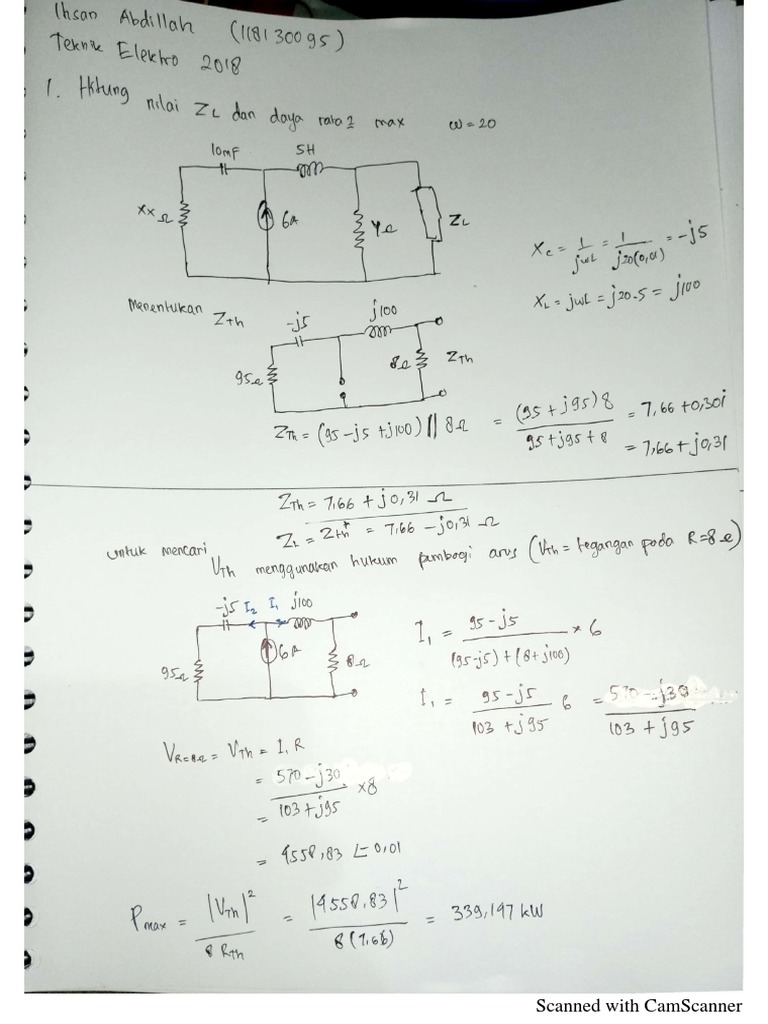 Ihsan Abdillah (1181 30095)
Teknik Elektro 2018
1. Hitung nilai ZL dan daya rata2 max ω = 20
10mF 5H
xx Ω 6A Y Ω ZL
Xc = 1/jωL = 1/j20(0,01) = -j5
XL = jωL = j20.5 = j100
Menentukan Zth
-j5 j100
95Ω 8Ω Zth
ZTh = (95 - j5 + j100) || 8Ω = (95 + j95) 8 / 95 + j95 + 8 = 7,66 + 0,30i
= 7,66 + j0,31
ZTh = 7,66 + j0,31 Ω
ZL = Zth* = 7,66 - j0,31 Ω
untuk mencari VTh menggunakan hukum pembagi arus (VTh = tegangan pada R = 8Ω)
-j5 I2 I1 j100
95Ω 6A 8Ω
I1 = 95 - j5 / (95 - j5) + (8 + j100) × 6
I1 = 95 - j5 / 103 + j95 6 = 570 - j30 / 103 + j95
VR=8Ω = VTh = I1 R
= 570 - j30 / 103 + j95 × 8
=
= 4558,83 ∠-0,01
Pmax = |VTh|² / 8 RTh = |4558,83|² / 8 (7,66) = 339,147 kW
Scanned with CamScanner